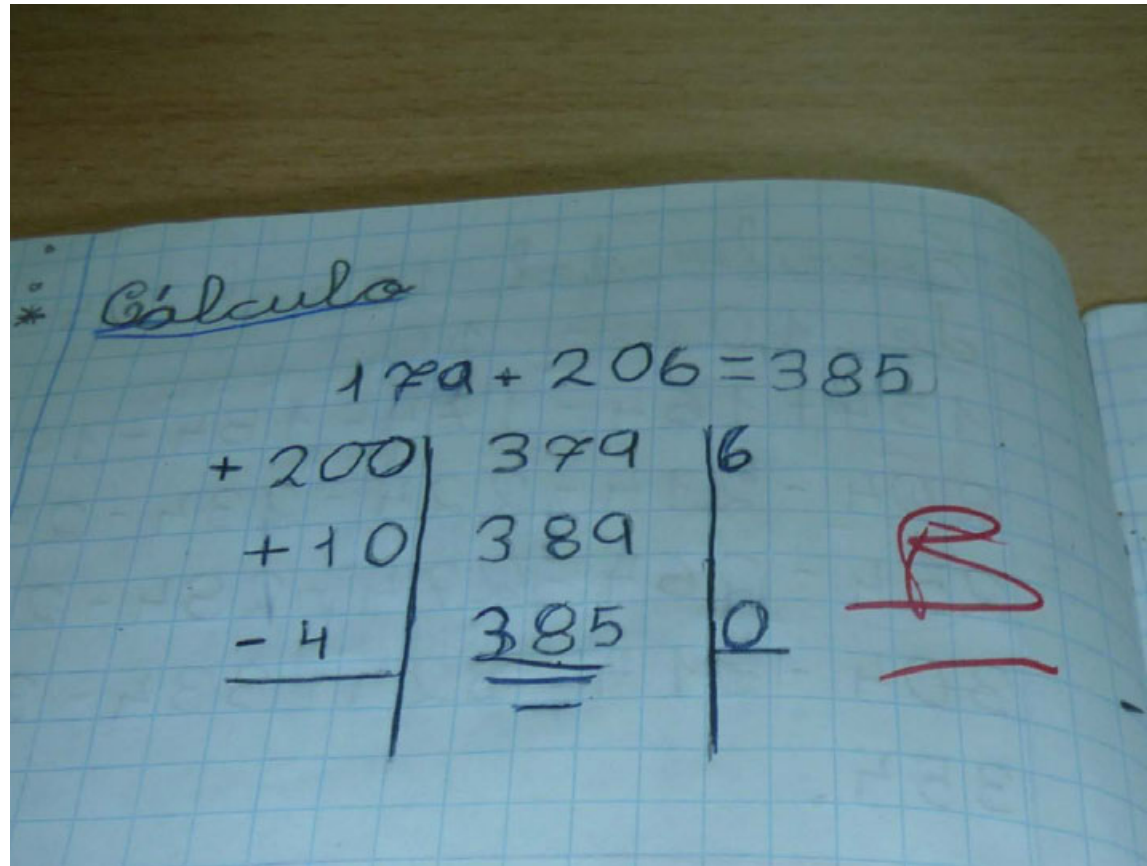 Cálculo
179 + 206 = 385
+ 200 | 379 | 6
+ 10 | 389 |
- 4 | 385 | 0
B